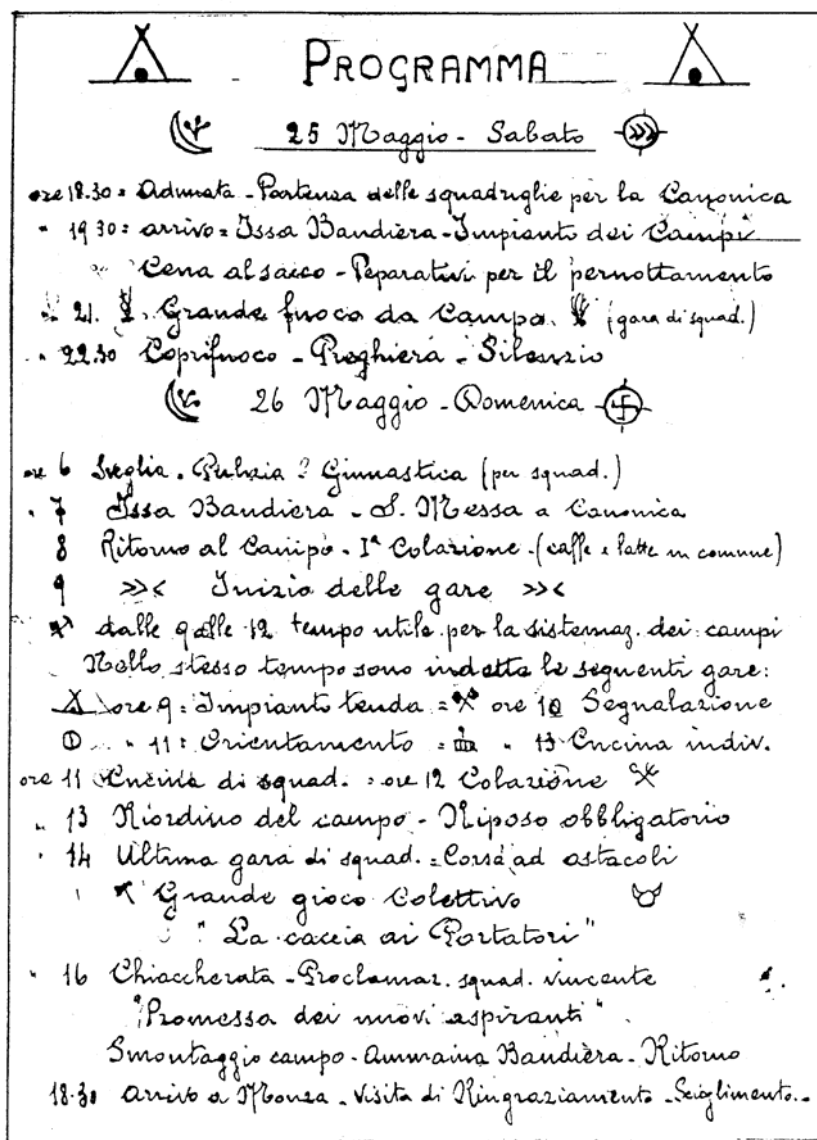 PROGRAMMA
25 Maggio - Sabato
ore 18.30 = Adunata - Partenza delle squadriglie per la Canonica
" 19 30 = arrivo = Issa Bandiera - Impianto dei Campi
Cena al sacco - Peparativi per il pernottamento
" 21. Grande fuoco da Campo. (gara di squad.)
" 22.30 Coprifuoco - Preghiera - Silenzio
26 Maggio - Domenica
ore 6 Sveglia - Pulizia = Ginnastica (per squad.)
" 7 Issa Bandiera - S. Messa a Canonica
8 Ritorno al Campo - Iª Colazione - (caffe e latte in comune)
9 >>< Inizio delle gare >><
dalle 9 alle 12 tempo utile per la sistemaz. dei campi
Nello stesso tempo sono indette le seguenti gare:
ore 9 = Impianto tenda = ore 10 Segnalazione
" 11 = Orientamento = " 13 Cucina indiv.
ore 11 Cucina di squad. = ore 12 Colazione
" 13 Riordino del campo - Riposo obbligatorio
" 14 Ultima gara di squad. = Corsa ad ostacoli
Grande gioco Colettivo
"La caccia ai Portatori"
" 16 Chiaccherata - Proclamaz. squad. vincente
"Promessa dei nuovi aspiranti"
Smontaggio campo - Ammaina Bandiera - Ritorno
18.30 arrivo a Monza - Visita di Ringraziamento - Scioglimento -